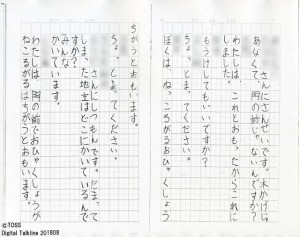 さんにさんせいです。木かげは
あなくて、岡の前じゃないんですか？
わたしは、これとおも、たからこれに
しました。
もうけしてもいいですか？
ちょ、とま、てください。
ぼくは、ね、ころがるおひゃくしょう
ちがうとおもいます。
ちょ、とま、てください。
さんにしつもんです。だま、て
しま、た地主はどこにかいているんで
すか？
みんな
かいています。
わたしは、岡の前でおひゃくしょうが
ねころがるはちがうとおもいます。
©TOSS
Digital Talkline 201808